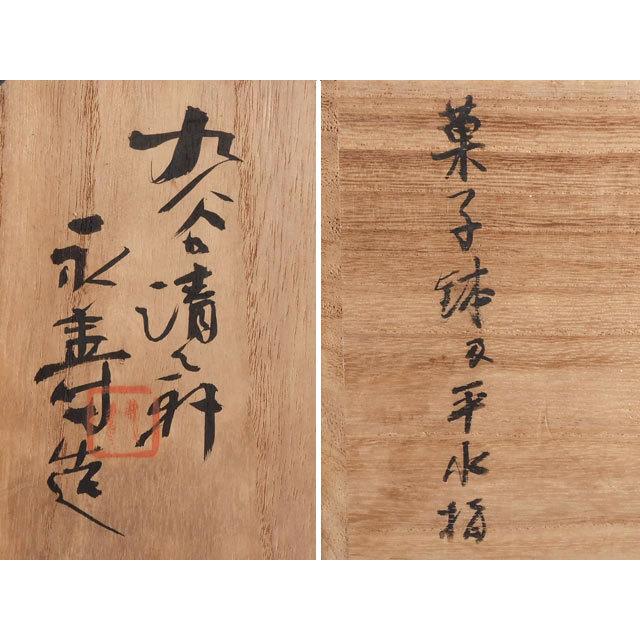 九谷清々軒
永寿造
菓子鉢又平水指